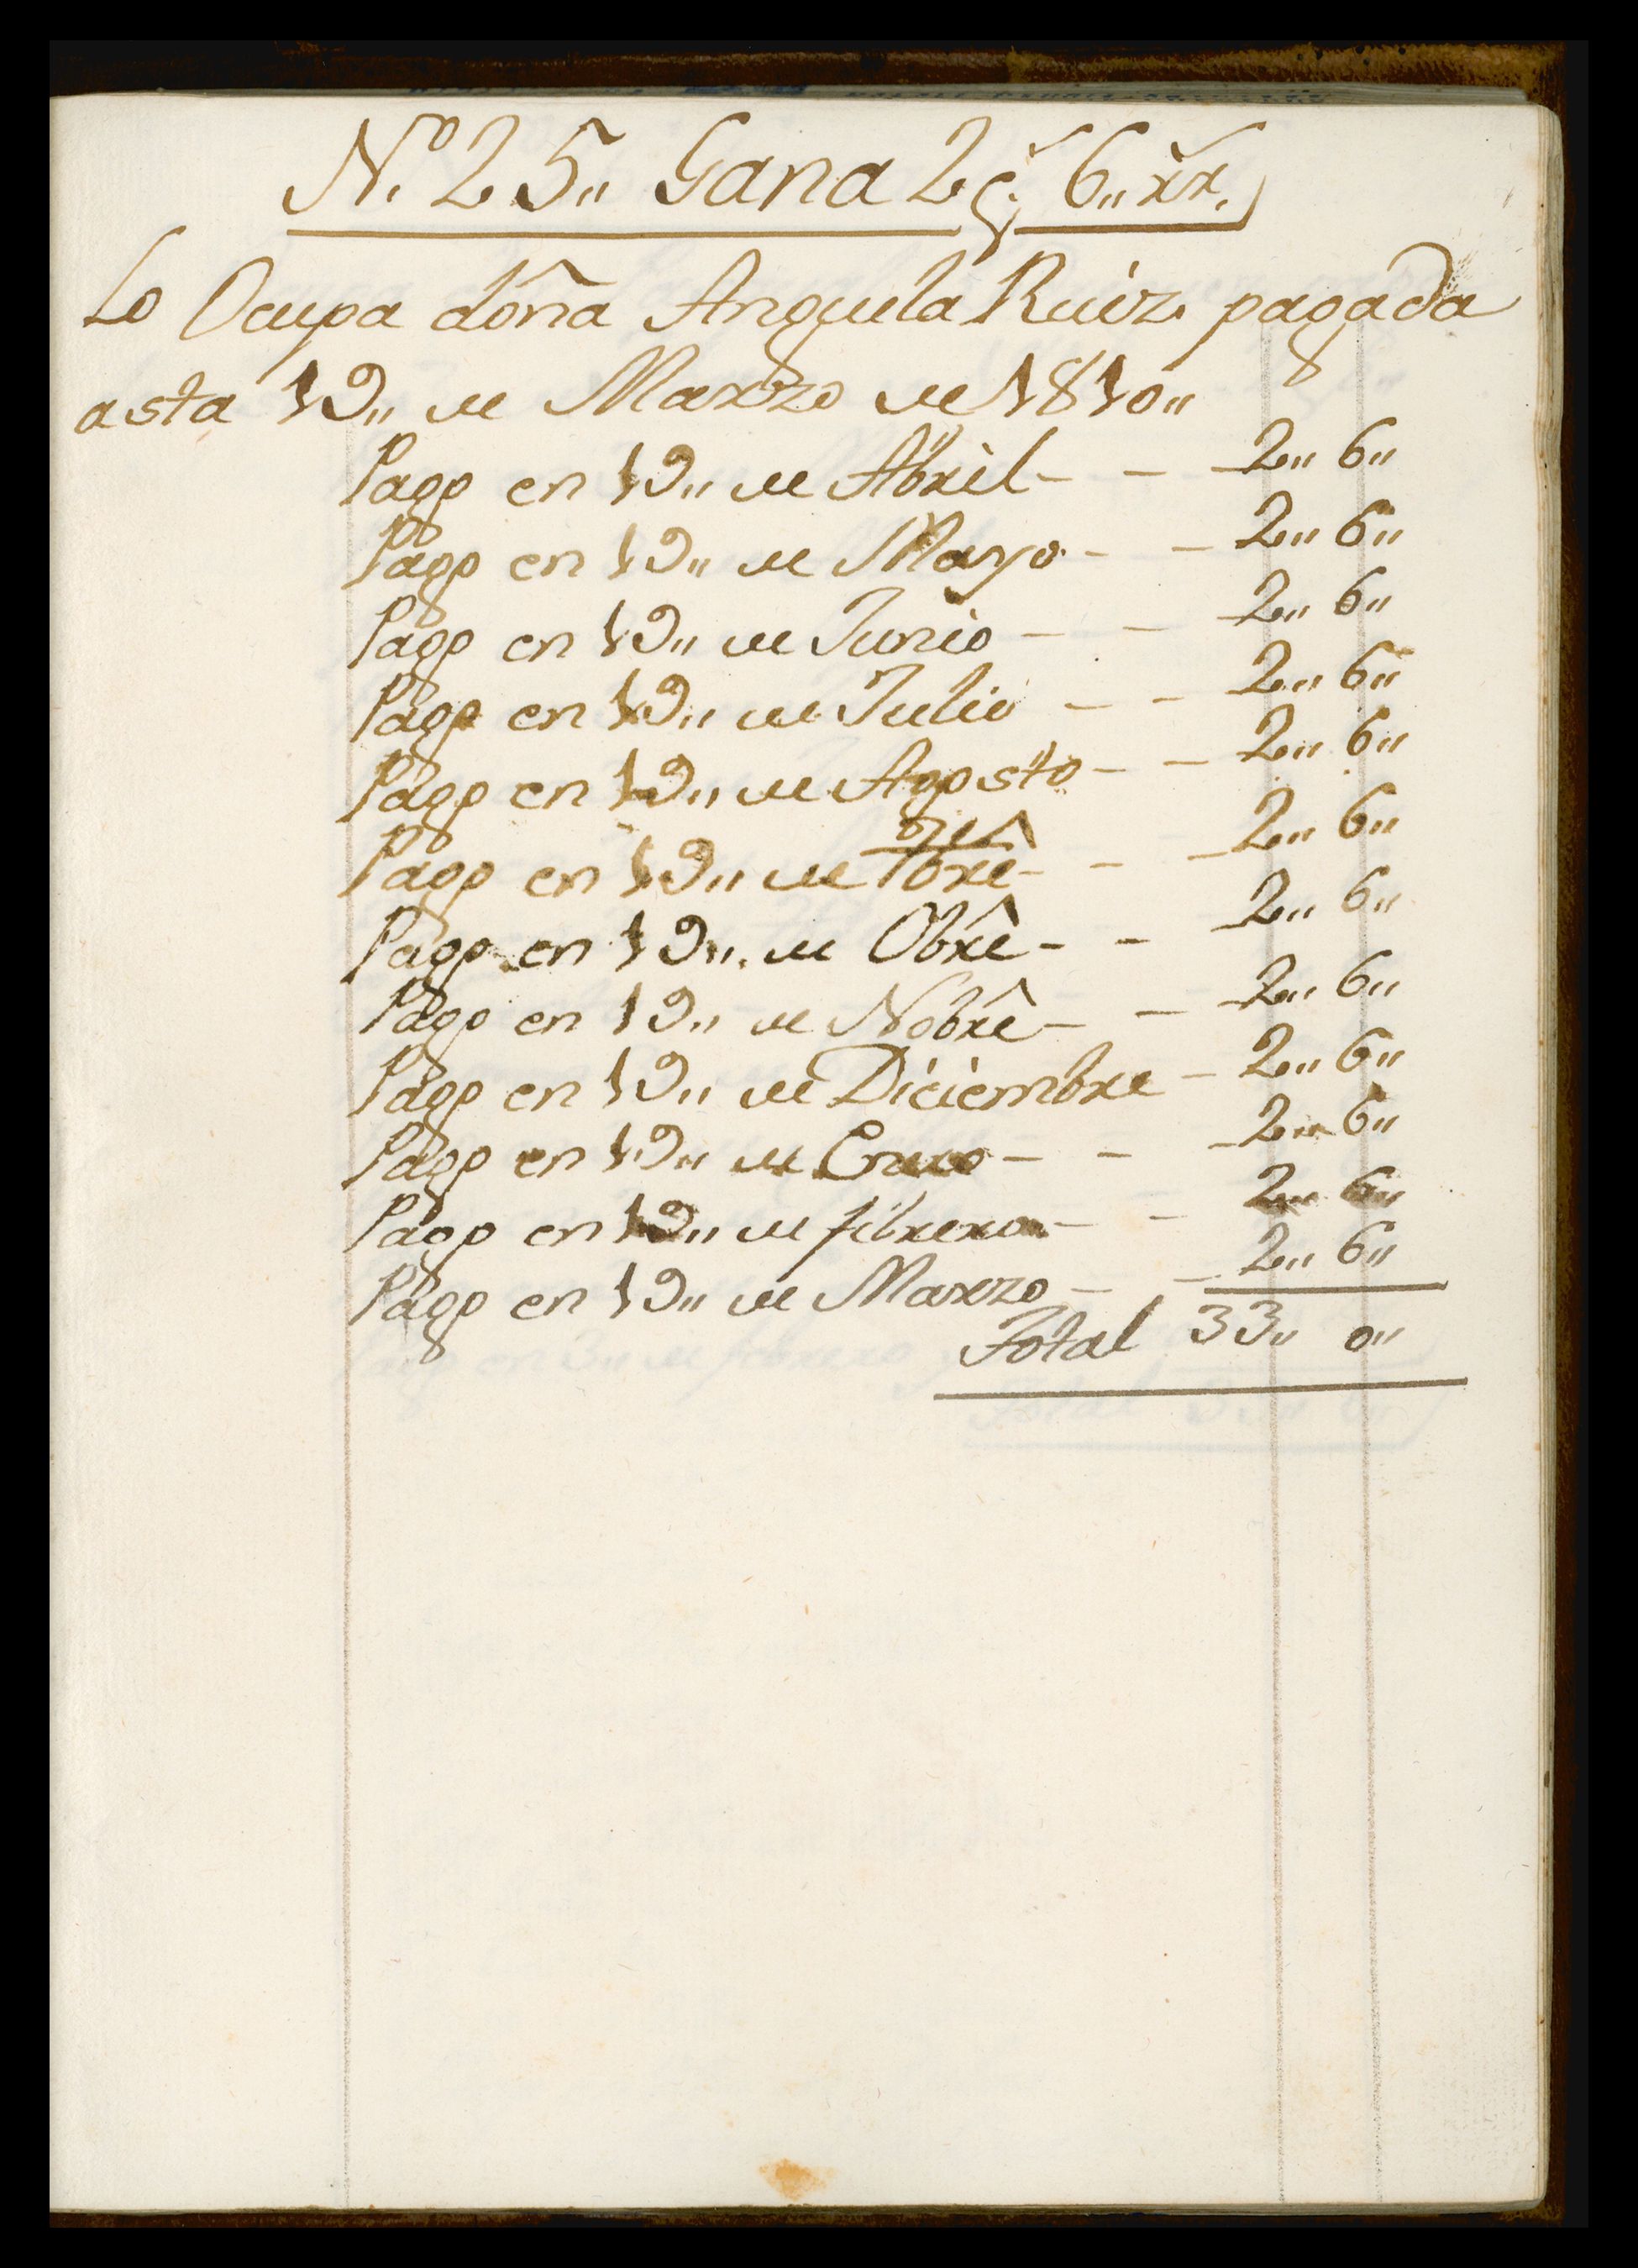 N.º 25,, Gana 2 p.s 6,, rr.
Lo Ocupa doña Anguela Ruiz pagada
asta 19,, de Marzo de 1810,,
Pago en 19,, de Abril - - - 2,, 6,,
Pago en 19,, de Mayo - - 2,, 6,,
Pago en 19,, de Junio - - - 2,, 6,,
Pago en 19,, de Julio - - 2,, 6,,
Pago en 19,, de Agosto - - 2,, 6,,
Pago en 19,, de 7brê - - - 2,, 6,,
Pago en 19,, de Obrê - - - 2,, 6,,
Pago en 19,, de Nobrê - - - 2,, 6,,
Pago en 19,, de Diciembre - 2,, 6,,
Pago en 19,, de Enero - - - 2,, 6,,
Pago en 19,, de febrero - - 2,, 6,,
Pago en 19,, de Marzo - - 2,, 6,,
Total 33,, 0,,